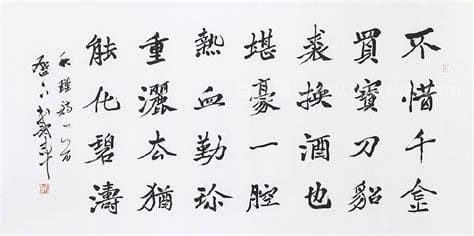 不惜千金
買寶刀貂
裘換酒也
堪豪一腔
熱血勤珍
重灑去猶
能化碧濤
秋瑾詩一首